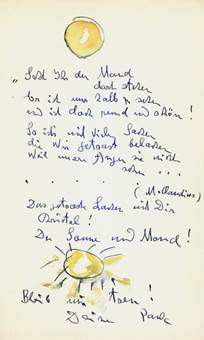 „Seht Ihr den Mond
dort stehen
Er ist nur halb zu sehen
und ist doch rund und schön!
So sind viele Sachen
die wir getrost belachen
Weil unsere Augen sie nicht
sehn ...
. . . . (M. Claudius)
Das getroste Lachen mit Dir
!
Du Sonne und Mond!
Bleib uns treu!
Deine